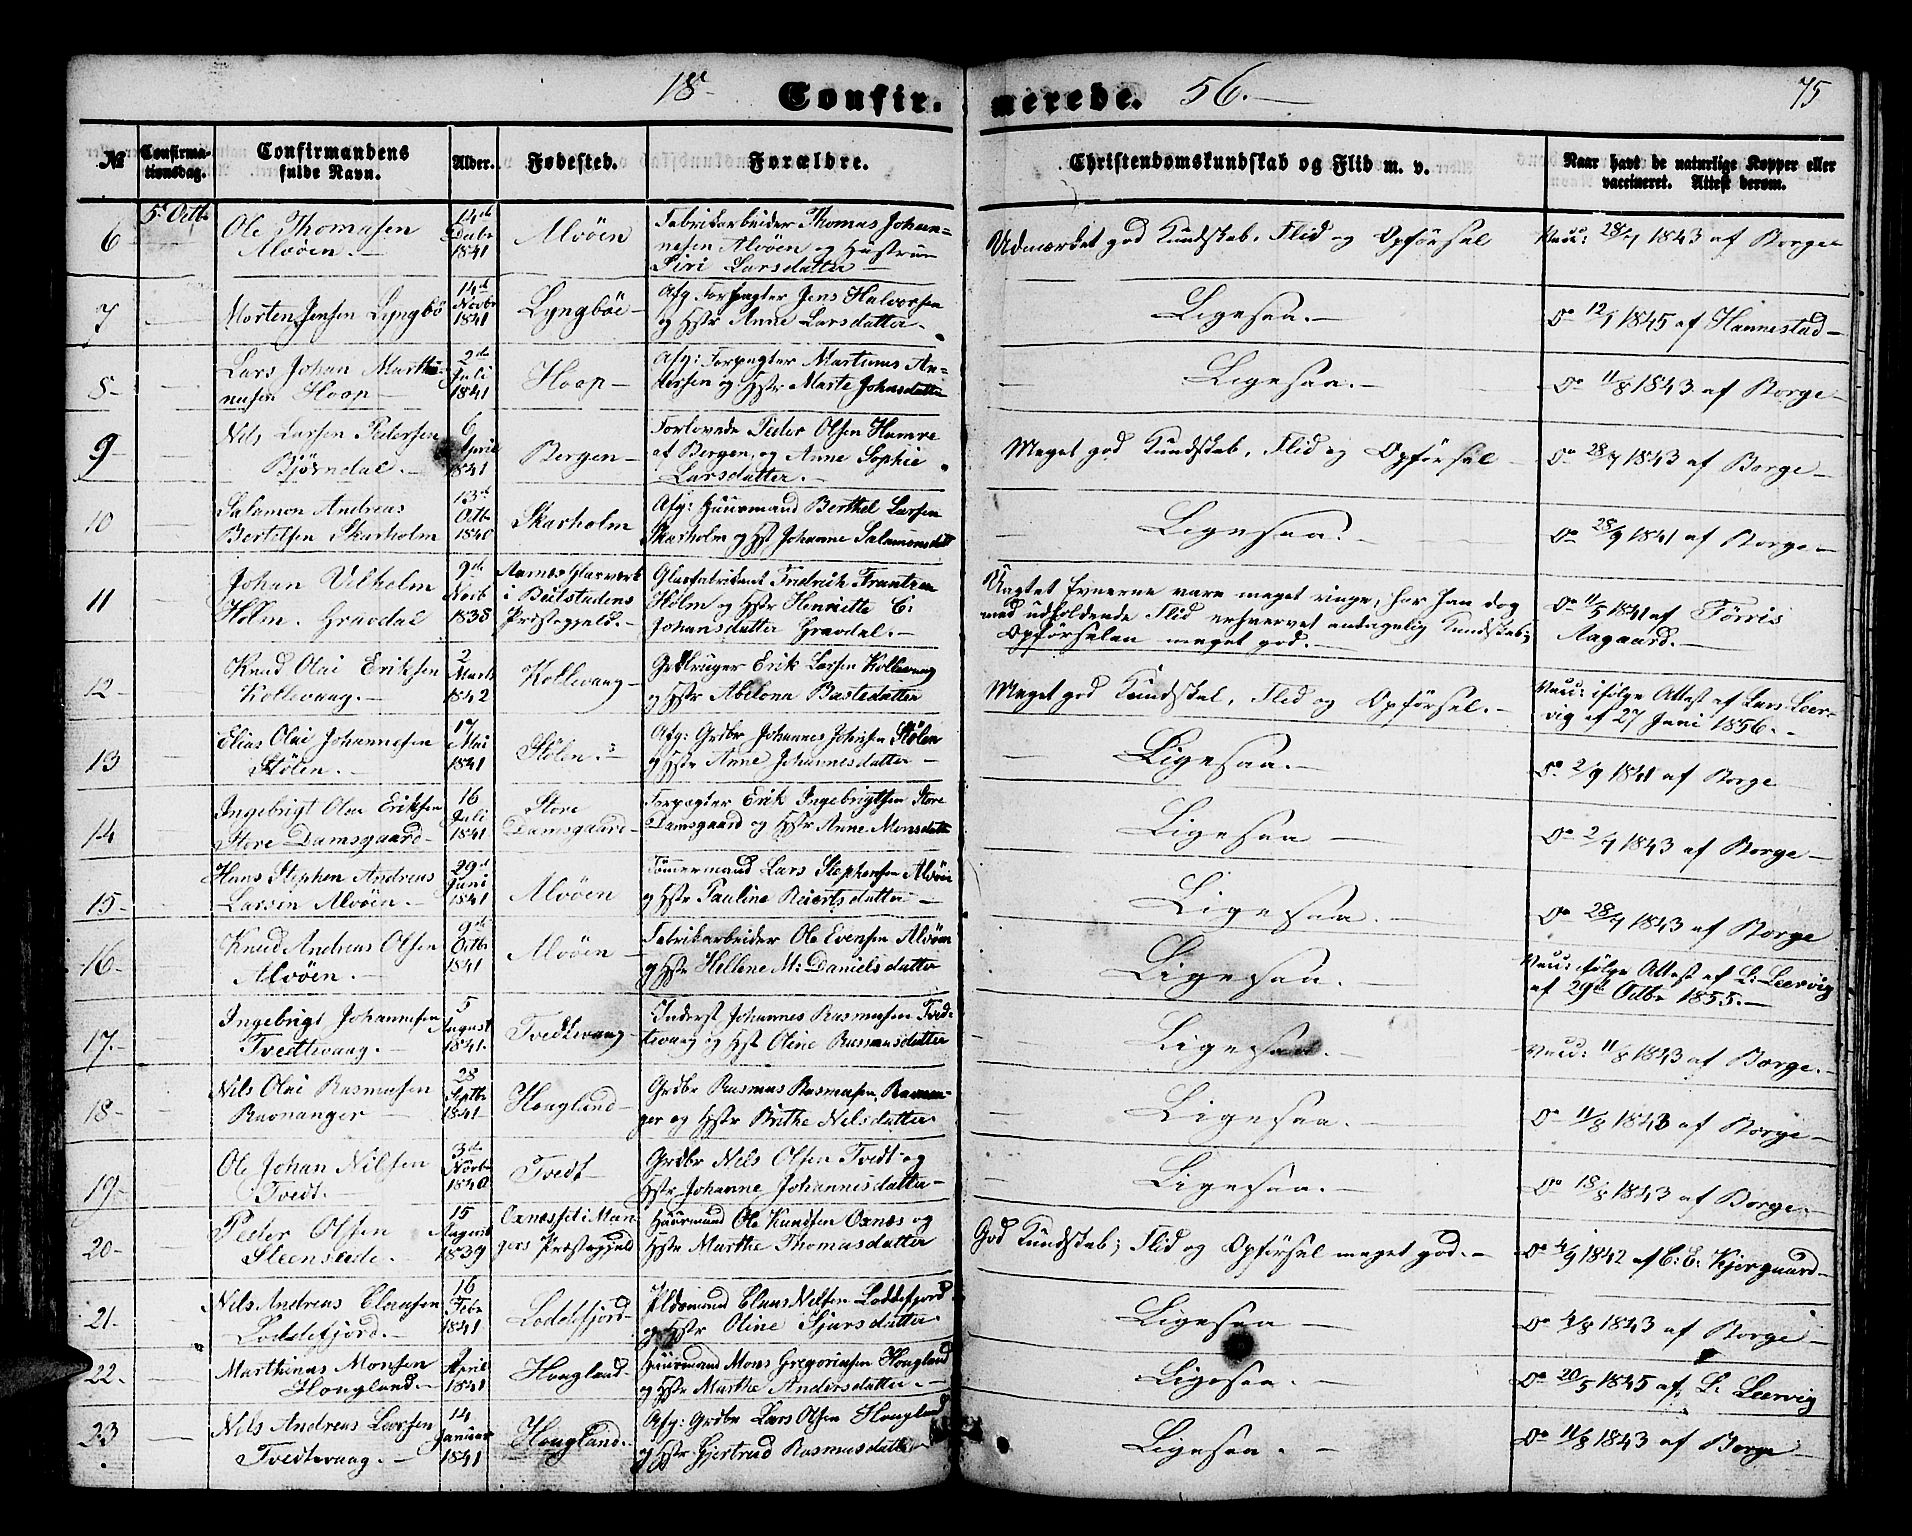 18
Confir-
merede.
56.
75
№
Confirma-
tionsdag.
Confirmandens
fulde Navn.
Alder.
Fødested.
Forældre.
Christendomskundskab og Flid m. v.
Naar havt de naturlige Kopper eller
vaccineret. Attest derom.
6
5 Octb
Ole Thomasen
Alvöen.
14de
Decbr
1841
Alvöen
Fabrikarbeider Thomas Johan-
nesen Alvöen og Hustrue
Siri Larsdatter
Udmærket god Kundskab, Flid og Opførsel
Vacc: 28/7 1843 af Borge
7
Morten Jensen Lyngbö
14de
Novbr
1841
Lyngböe
Afg Forpagter Jens Halvorsen
og Hstr Anne Larsdatter
Ligesaa.
Do 12/1 1845 af Hannestad
8
Lars Johan Marthi-
nusen Hoop
2de
Juli
1841
Hoop
Afg: Forpagter Martinus An-
dersen og Hstr Marte Johnsdatter
Ligesaa.
Do 11/8 1843 af Borge
9
Nils Larsen Pedersen
Björndal.
6
April
1841
Bergen
Forlovede Peder Olsen Hamre
af Bergen, og Anne Sophie
Larsdatter.
Meget god Kundskab, Flid og Opførsel
Do 28/7 1843 af Borge
10
Salamon Andreas
Bertelsen Skarholm
13de
Octb
1840
Skarholm
Afg: Huusmand Berthel Larsen
Skarholm og Hst Johanne Salamonsdatt
Ligesaa.
Do 28/9 1841 af Borge
11
Johan Vilhelm
Holm. Gravdal
9de
Novb
1838
Aarnes Glasværk
i Beitstadens
Præstegjeld.
Glasfabrikant Fredrich Frantzen
Holm og Hstr Henriette C:
Johansdatter Gravdal.
Uagtet Evnerne vare meget ringe, har han dog
med udholdende Flid erhvervet antagelig Kundskab;
Opførselen meget god.
Do 11/5 1841 af Törris
Aagaard.
12
Knud Olai Eriksen
Kollevaag.
2
Marts
1842
Kollevaag
Grdbruger Erik Larsen Kollevaag
og Hstr Abelona Bastedatter
Meget god Kundskab, Flid og Opførsel.
Vacc: ifölge Attest af Lars Leer-
vig af 27 Juni 1856.
13
Elias Olai Johannesen
Stölen.
17
Mai
1841
Stölen.
Afg: Grdbr Johannes Johnsen Stölen
og Hstr Anne Johannesdatter
Ligesaa.
Do 2/9 1841 af Borge
14
Ingebrigt Olai Eriksen
Store Damsgaard
16
Juli
1841
Store
Damsgaard
Forpagter Erik Ingebrigtsen Store
Damsgaard og Hstr Anne Monsdatt
Ligesaa
Do 2/7 1843 af Borge
15
Hans Stephen Andreas
Larsen Alvöen.
29de
Juni
1841
Alvöen
Tömmermand Lars Stephensen Alvöen
og Hstr Pauline Reiertsdatter
Ligesaa.
Do 28/7 1843 af Borge
16
Knud Andreas Olsen
Alvöen.
9de
Octbr
1841
Alvöen
Fabrikarbeider Ole Evensen Alvöen
og Hstr Hellene M: Danielsdatter
Ligesaa.
Vacc: ifölge Attest af L: Leervig
af 29de Octbr 1855.
17.
Ingebrigt Johannesen
Tvedtevaag.
5
August
1841.
Tvedtevaag
Inderst Johannes Rasmusen Tvedt-
tevaag og Hst Oline Rasmusdatter
Ligesaa.
Vacc: 11/8 1843 af Borge.
18
Nils Olai Rasmusen
Ravnanger
28
Septbr
1841.
Hougland
Grdbr Rasmus Rasmusen Ravnan-
ger og Hstr Brithe Nilsdatter.
Ligesaa.
Do 11/8 1843 af Borge
19
Ole Johan Nilsen
Tvedt.
3de
Novbr
1840
Tvedt
Grdbr Nils Olsen Tvedt og
Hstr Johanne Johannesdatter
Ligesaa.
Do 18/8 1843 af Borge
20
Peder Olsen
Steensede.
15
August
1839
Oxnæs fit i Man
gers Præstegjeld
Huusmand Ole Knudsen Oxnæs og
Hstr Marthe Thomasdatter
God Kundskab; Flid og Opførsel meget god.
Do 4/9 1842 af C: C: Kjergaard
21.
Nils Andreas Clausen
Loddefjord.
16
Febr
1841
Loddefjord
Pladsmand Claus Nilsen Loddefjord
og Hstr Oline Sjursdatter
Ligesaa
Do 4/8 1843 af Borge
22.
Marthinus Monsen
Hougland.
9
April
1841
Hougland
Huusmand Mons Gregoriusen Hougland
og Hstr Marthe Andersdatter.
Ligesaa.
Do 20/5 1845 af L: Leervig
23
Nils Andreas Larsen
Tvedtevaag.
14
Januar
1841
Hougland.
Afg: Grdbr Lars Olsen Hougland
og Hstr Gjertrud Rasmusdatter
Ligesaa.
Do 11/8 1843 af Borge